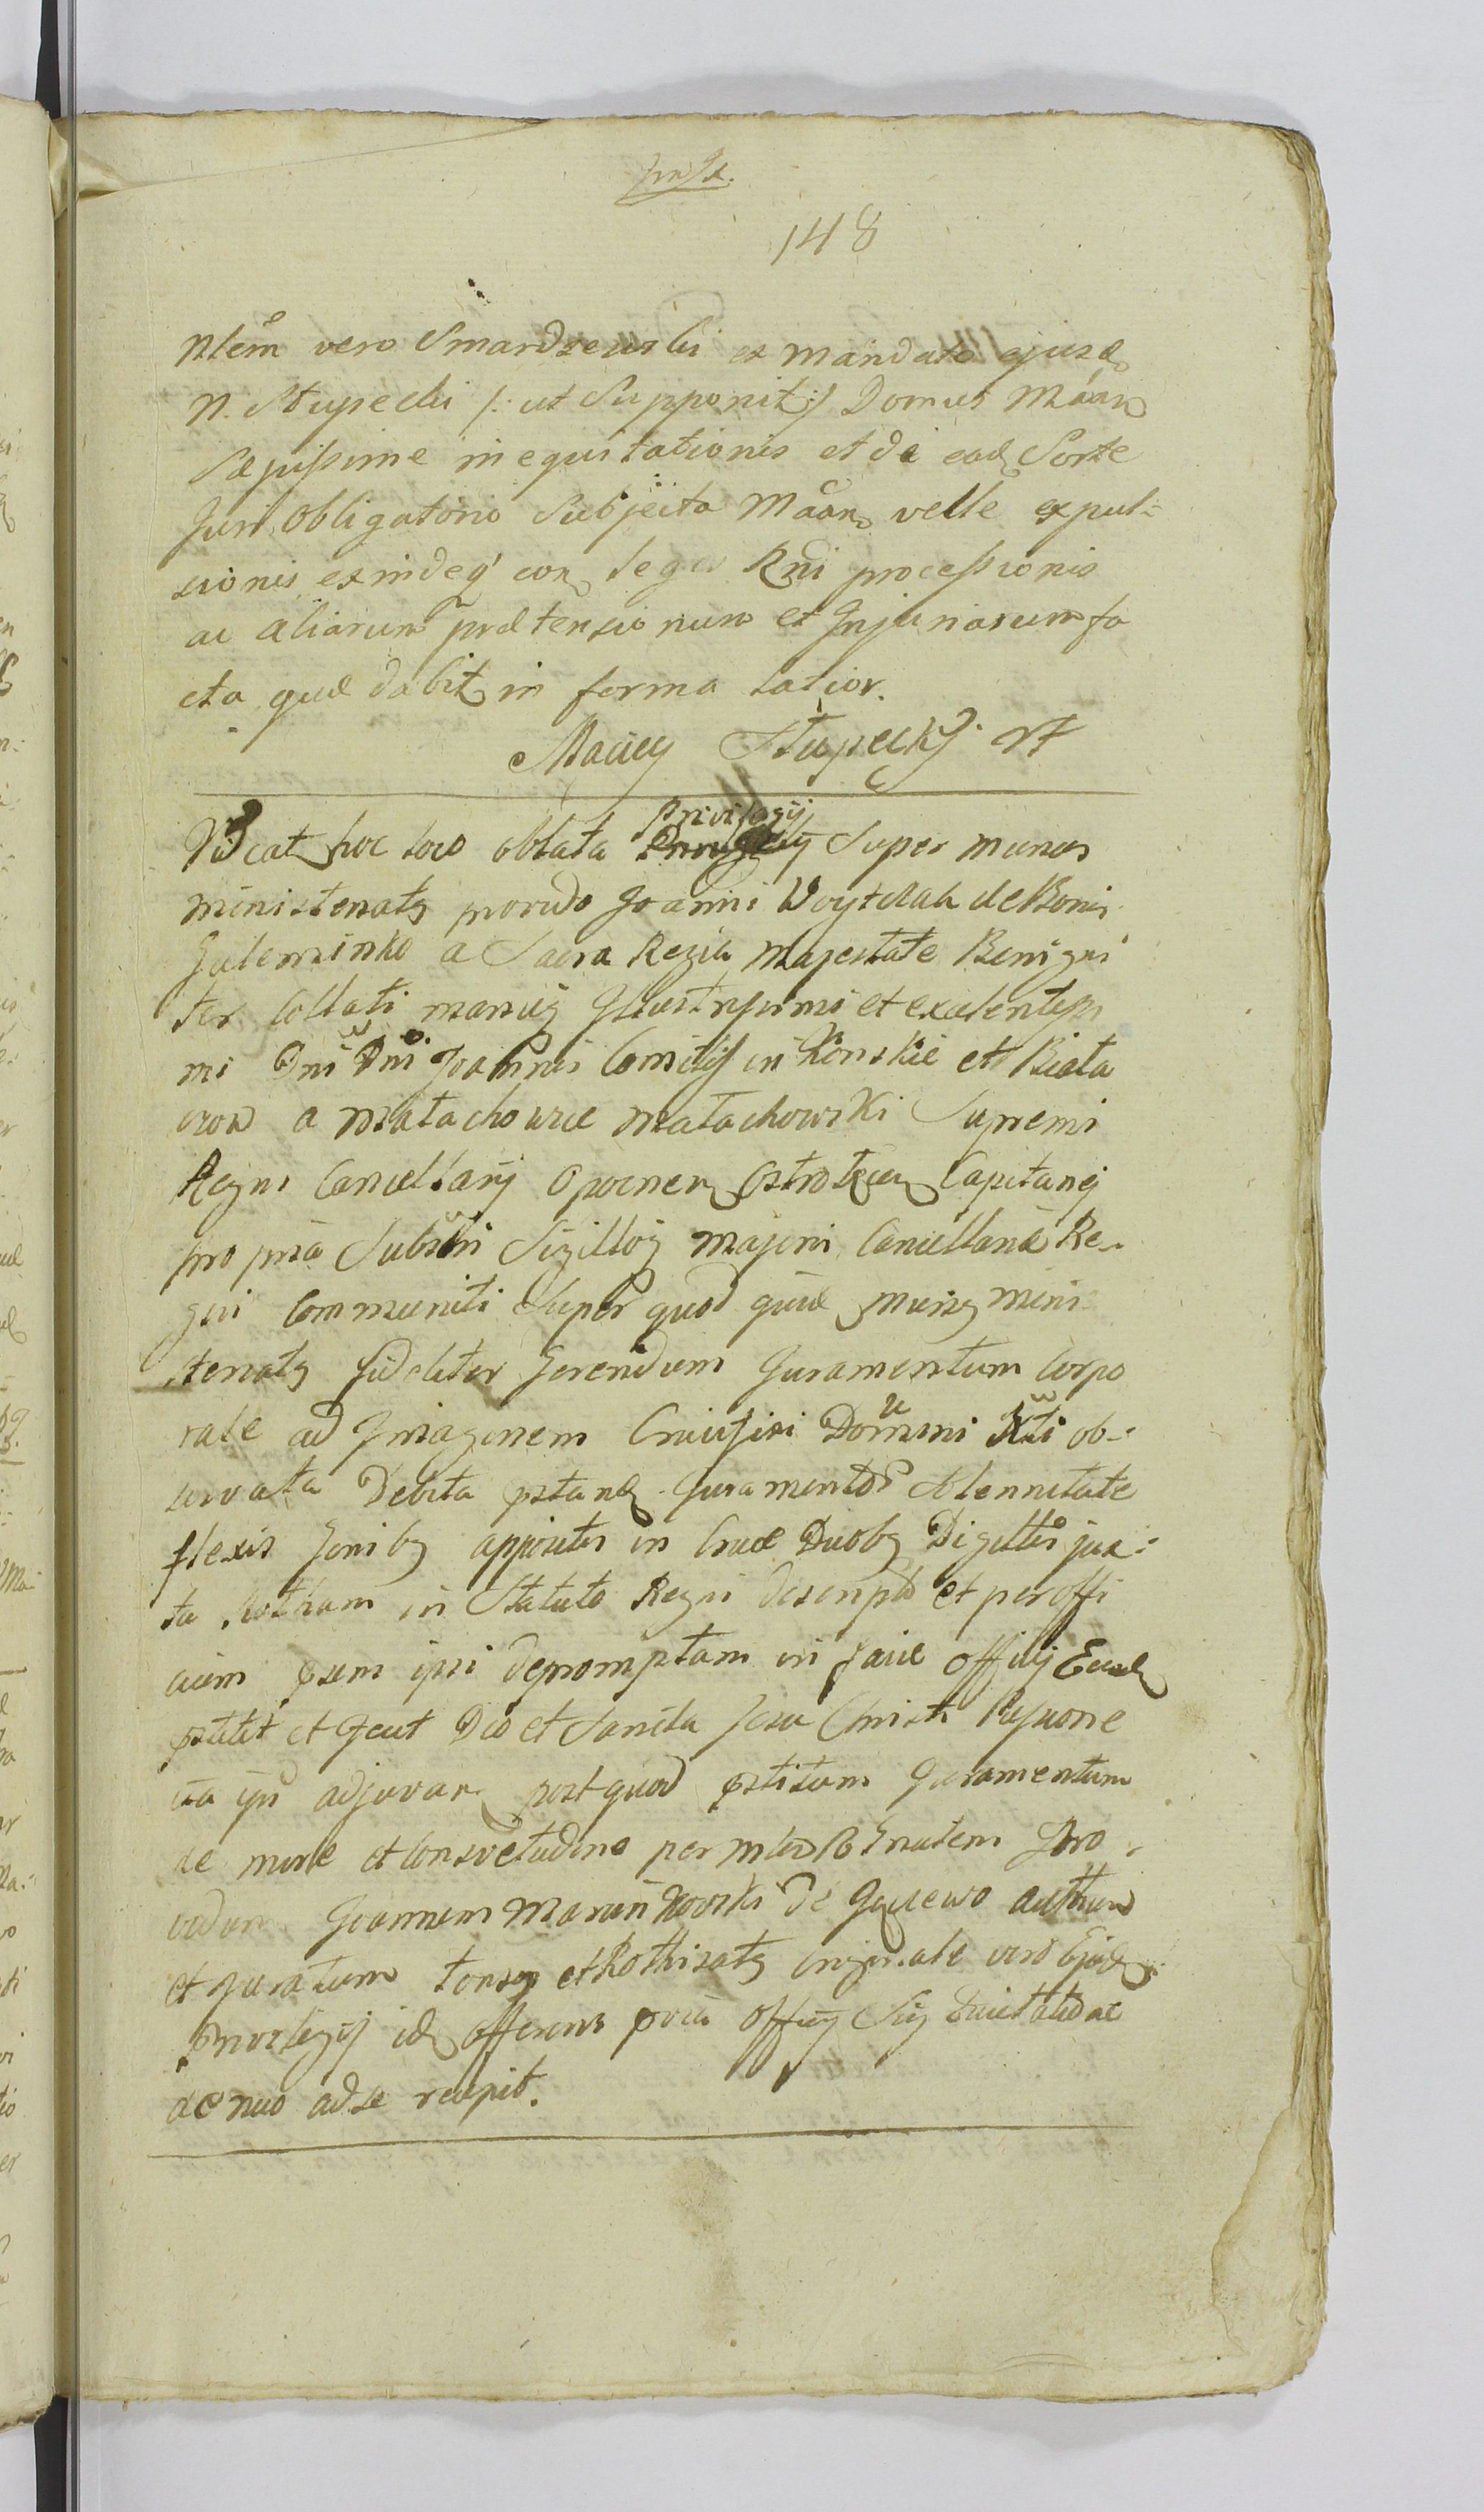 148
Nlem vero Smardzewski ex mandato ejusd
N. Stupecki /: ut Supponit :/ Domus Maan
Sæpissime inequitationis et de ead Sorte
Juri Obligatorio Subjecta Maan velle expul=
sionis exindeq con lege Rni processionis
ac aliarum prætensionum et Injuriarum fa
cta quæ dabit in forma latior.
Maciey Słupecky
Vacat hoc loco oblata Privilegij Super munus
ministeriatq provido Joanni Woytclak de Bonis
a Sacra Regia Majestate Benigni
ter Collati manuq Illustrissimi et excelentissi
mi Dni Dni Joannis Comitis in Konskie et Biała
czow a Małachowice Małachowski Supremi
Regni Cancellarij Opocnen Ostrołecen Capitanej
propria Subscri Sigilloq majori Cancellariæ Re=
gni Communiti Super quod quidē munq mini
steriatq fideliter Gerendum Juramentum Corpo
rale ad Imaginem Crucifixi Domini Xti ob=
servata Debita pstand Juramentor Solennitate
flexis Genibq appositis in Cruce Duobq Digittis jux=
ta Rotham in Statuto Regni descripta et per offi
cium psens ipsi depromptam in facie Officij Eund
pstitit et Jcut Deo et Sancta Jesu Christi Passione
ita ipsi adjuvan post quod pstitum Juramentum
de more et Consvetudine per Ministerialem Pro
vidum Joannem Marcinkowski de authen
et juratum tonsq et Rothisatq originale vero Ejusd
Privilegij id offerens
denuo ad se recepit.